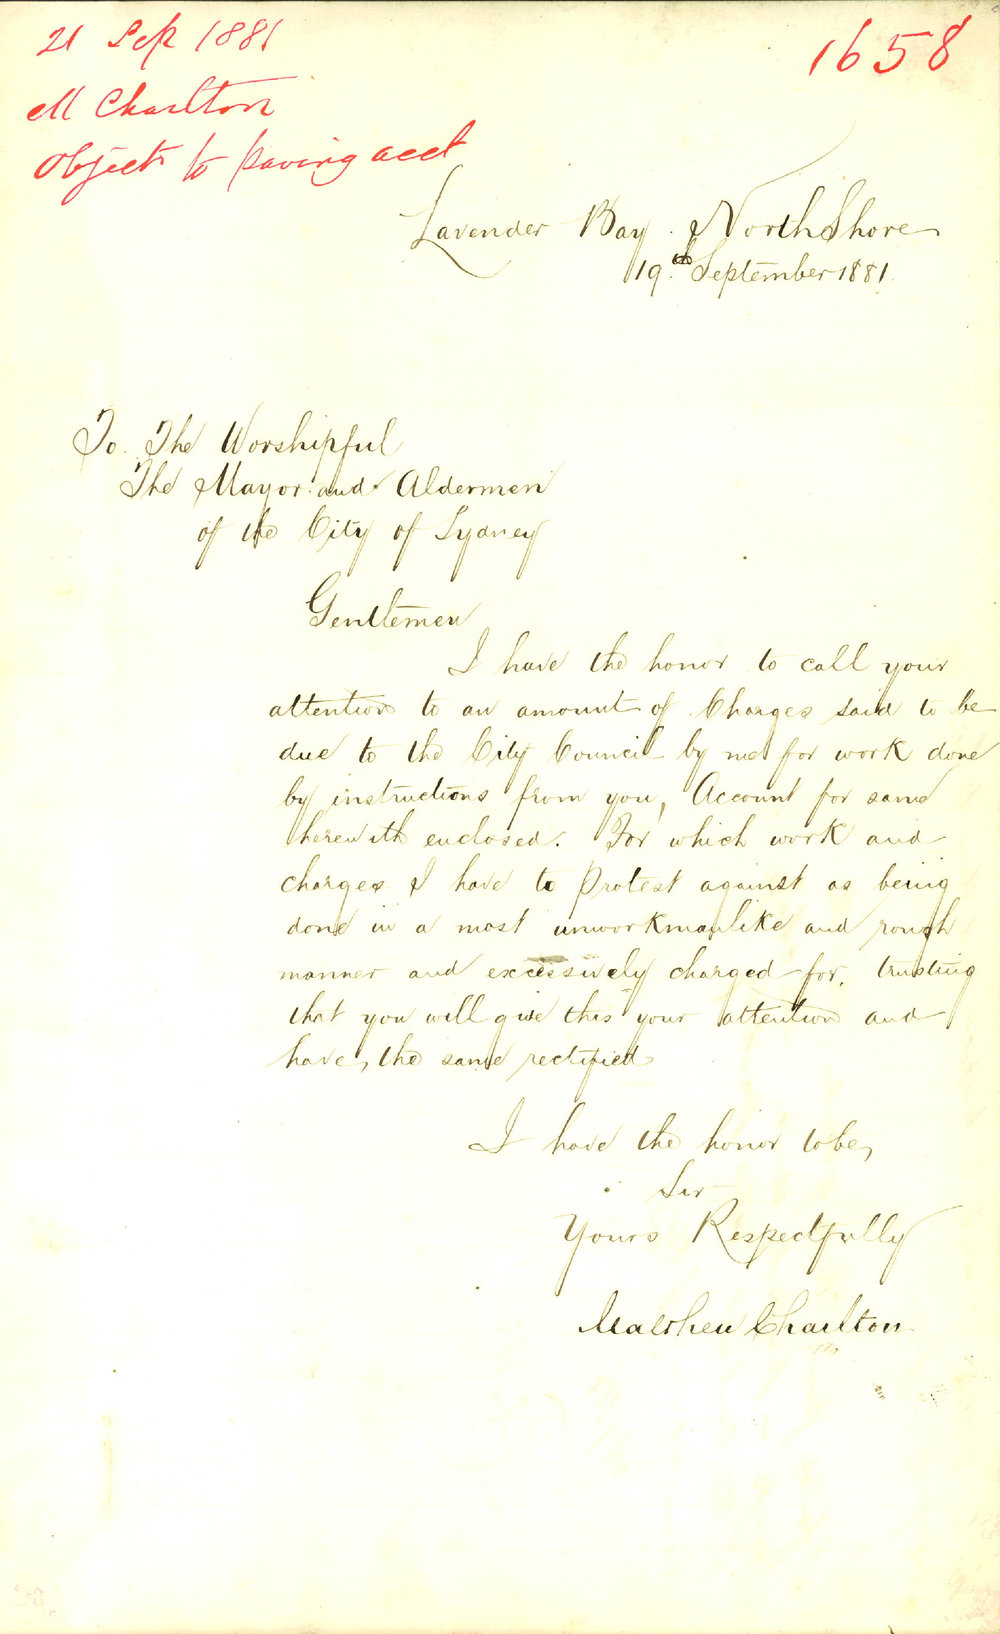 21 Sep 1881
1658
M Charlton
Objects to paving acct
Lavender Bay. North Shore
19th September 1881.
To. The Worshipful
The Mayor and Aldermen
of the City of Sydney
Gentlemen
I have the honor to call your
attention to an amount of Charges said to be
due to the City Council by me for work done
by instructions from you, Account for same
herewith enclosed. For which work and
charges I have to Protest against as being
done in a most unworkmanlike and rough
manner and excessively charged for, trusting
that you will give this your attention and
have, the same rectified
I have the honor to be,
Sir
Yours Respectfully
Matthew Charlton